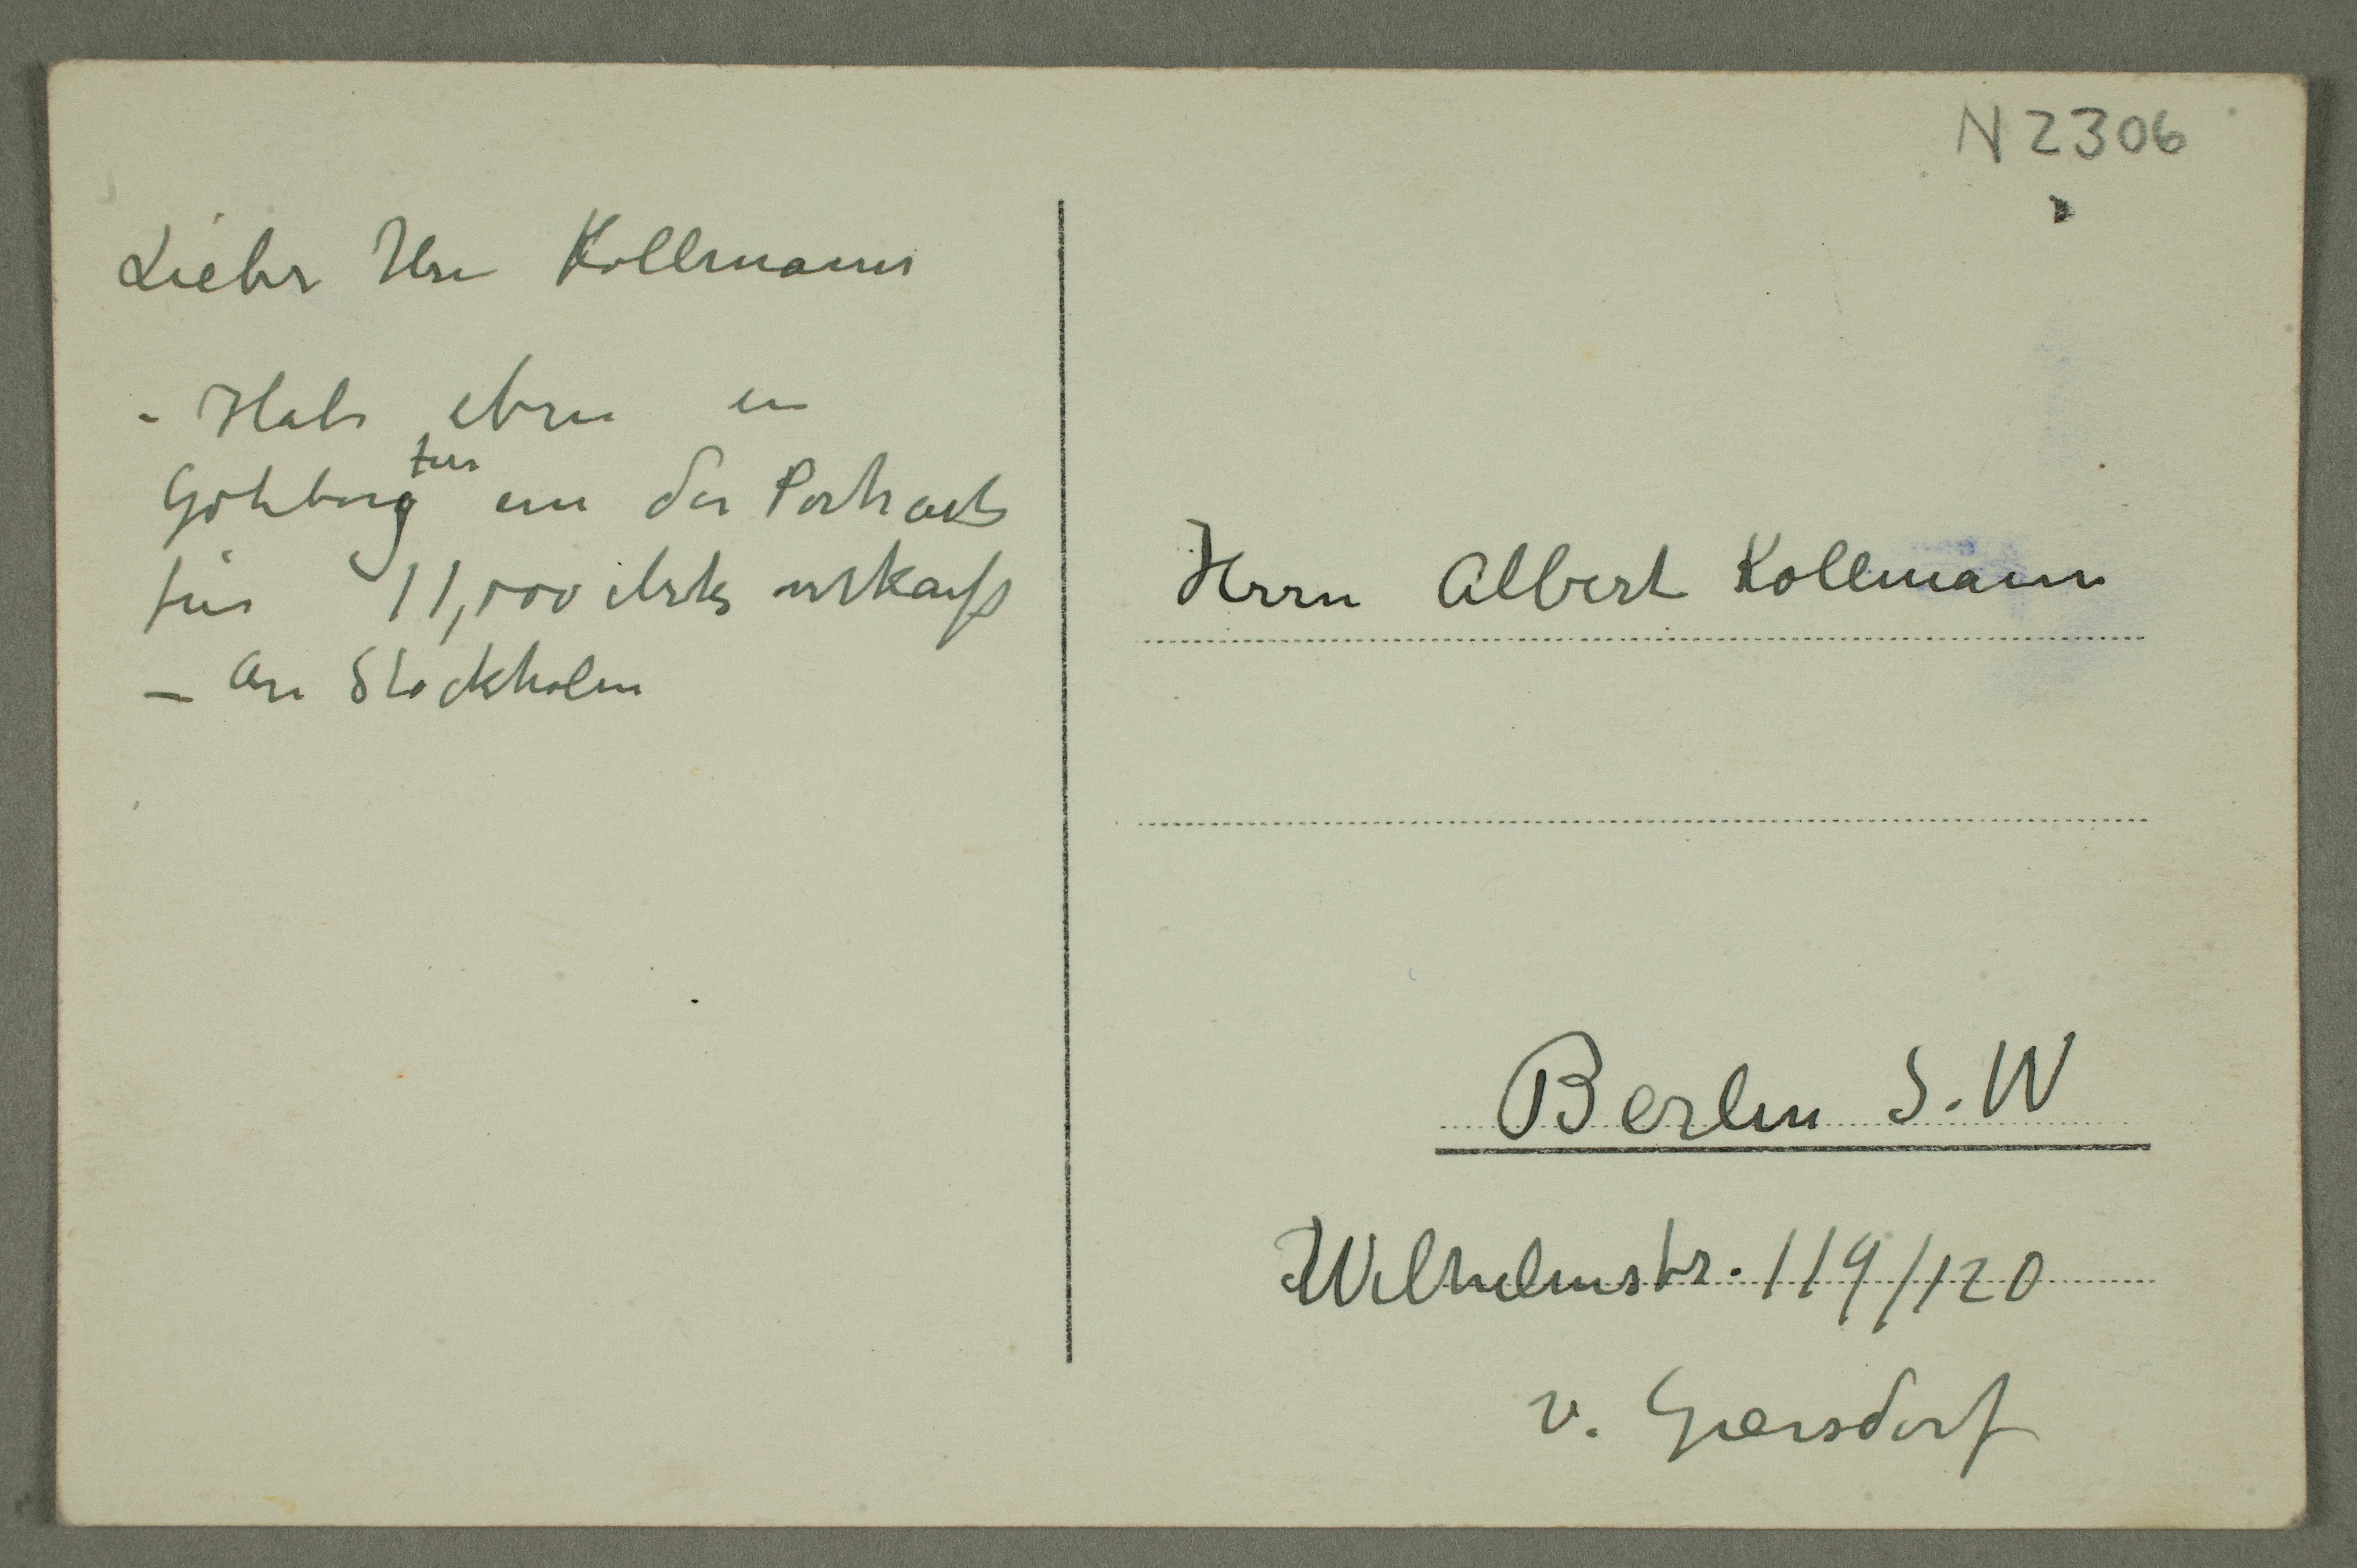 N 2306
Lieber Herr Kollmann
- Habe eben in
für
Gothborg ein der Portraits
für 11,000 verkauft
– An Stockholm
Herrn Albert Kollmann
Berlin S.W
Wilhelmstr. 119/120
v. Giersdorf